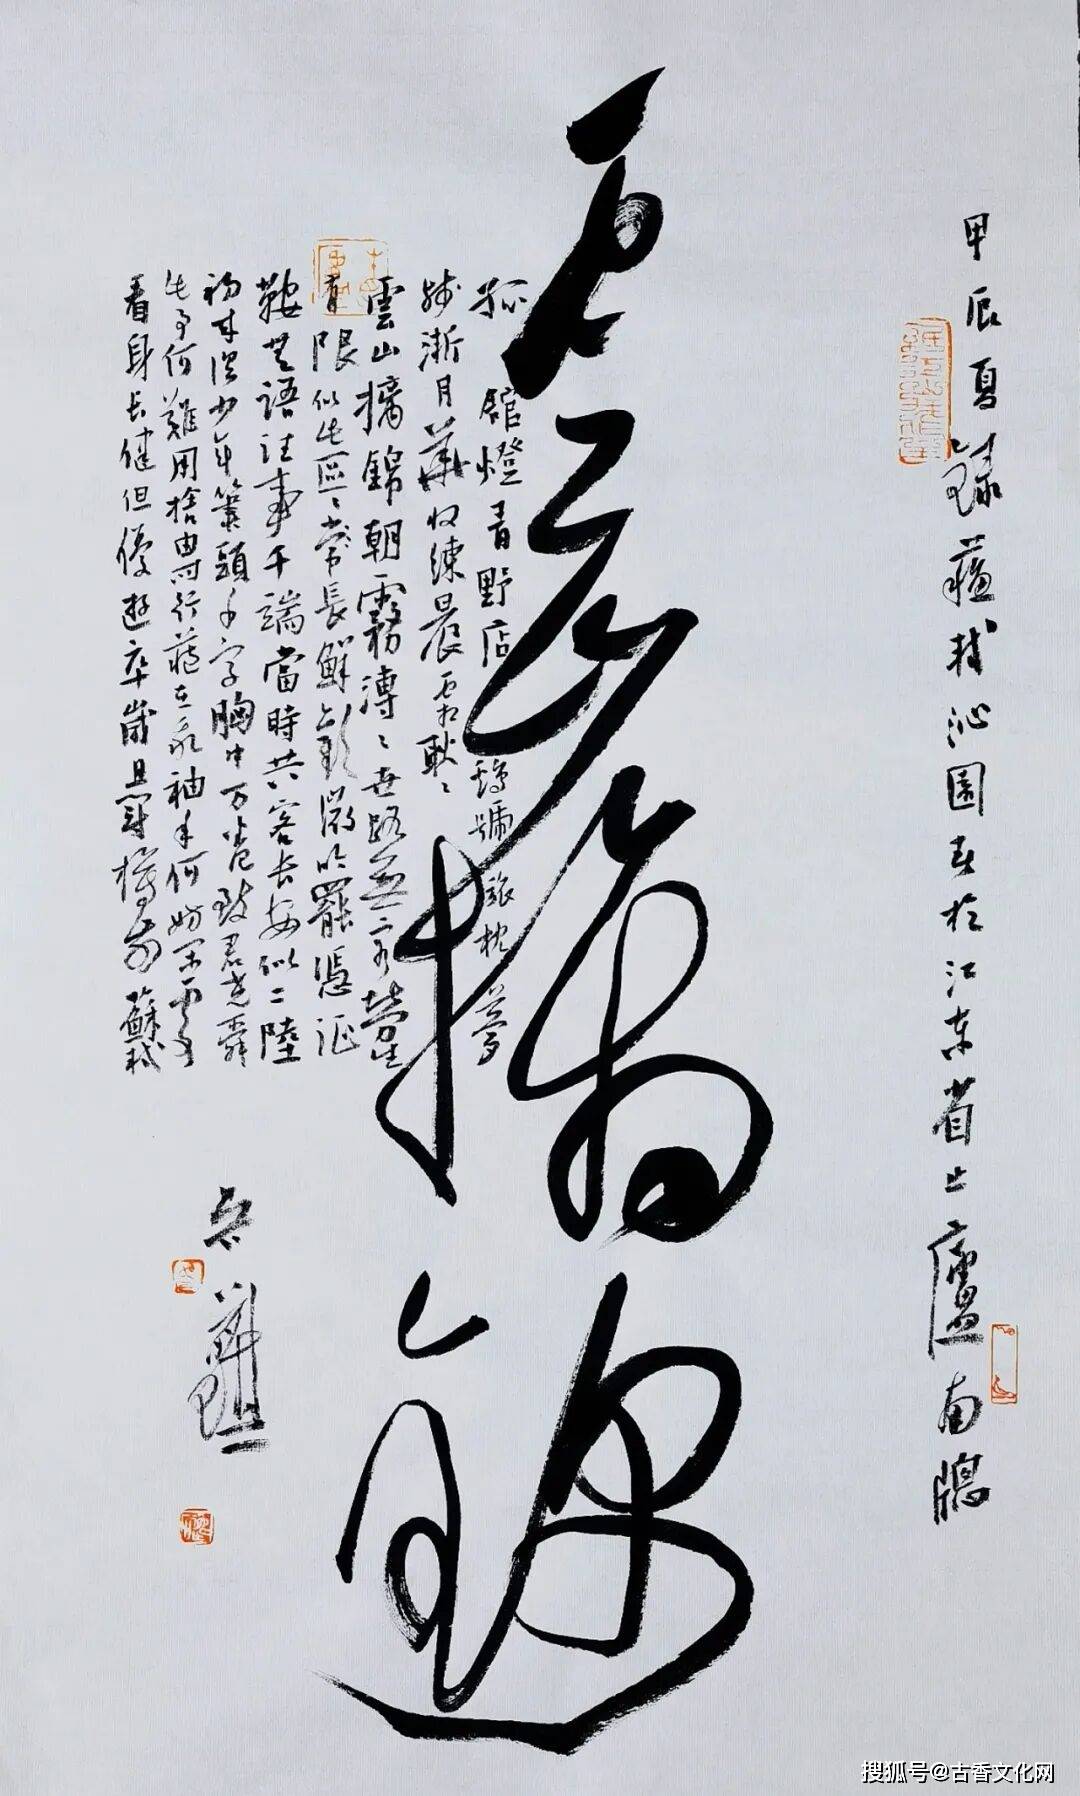 甲辰夏錄蘇軾沁園春於江東省上廬南牕
雲山摛錦
孤館燈青野店鷄號旅枕夢
殘漸月華收練晨霜耿〻
雲山摛錦朝霧漙〻世路無窮勞生
有限似此區〻常長鮮歡微吟罷憑征
鞍無語往事千端當時共客長安似二陸
初來俱少年筆頭千字胸中万卷致君堯舜
此事何難用捨由時行藏在我袖手何妨閑處
看身長健但優遊卒歲且鬥樽前 蘇軾
搜狐号@古香文化网